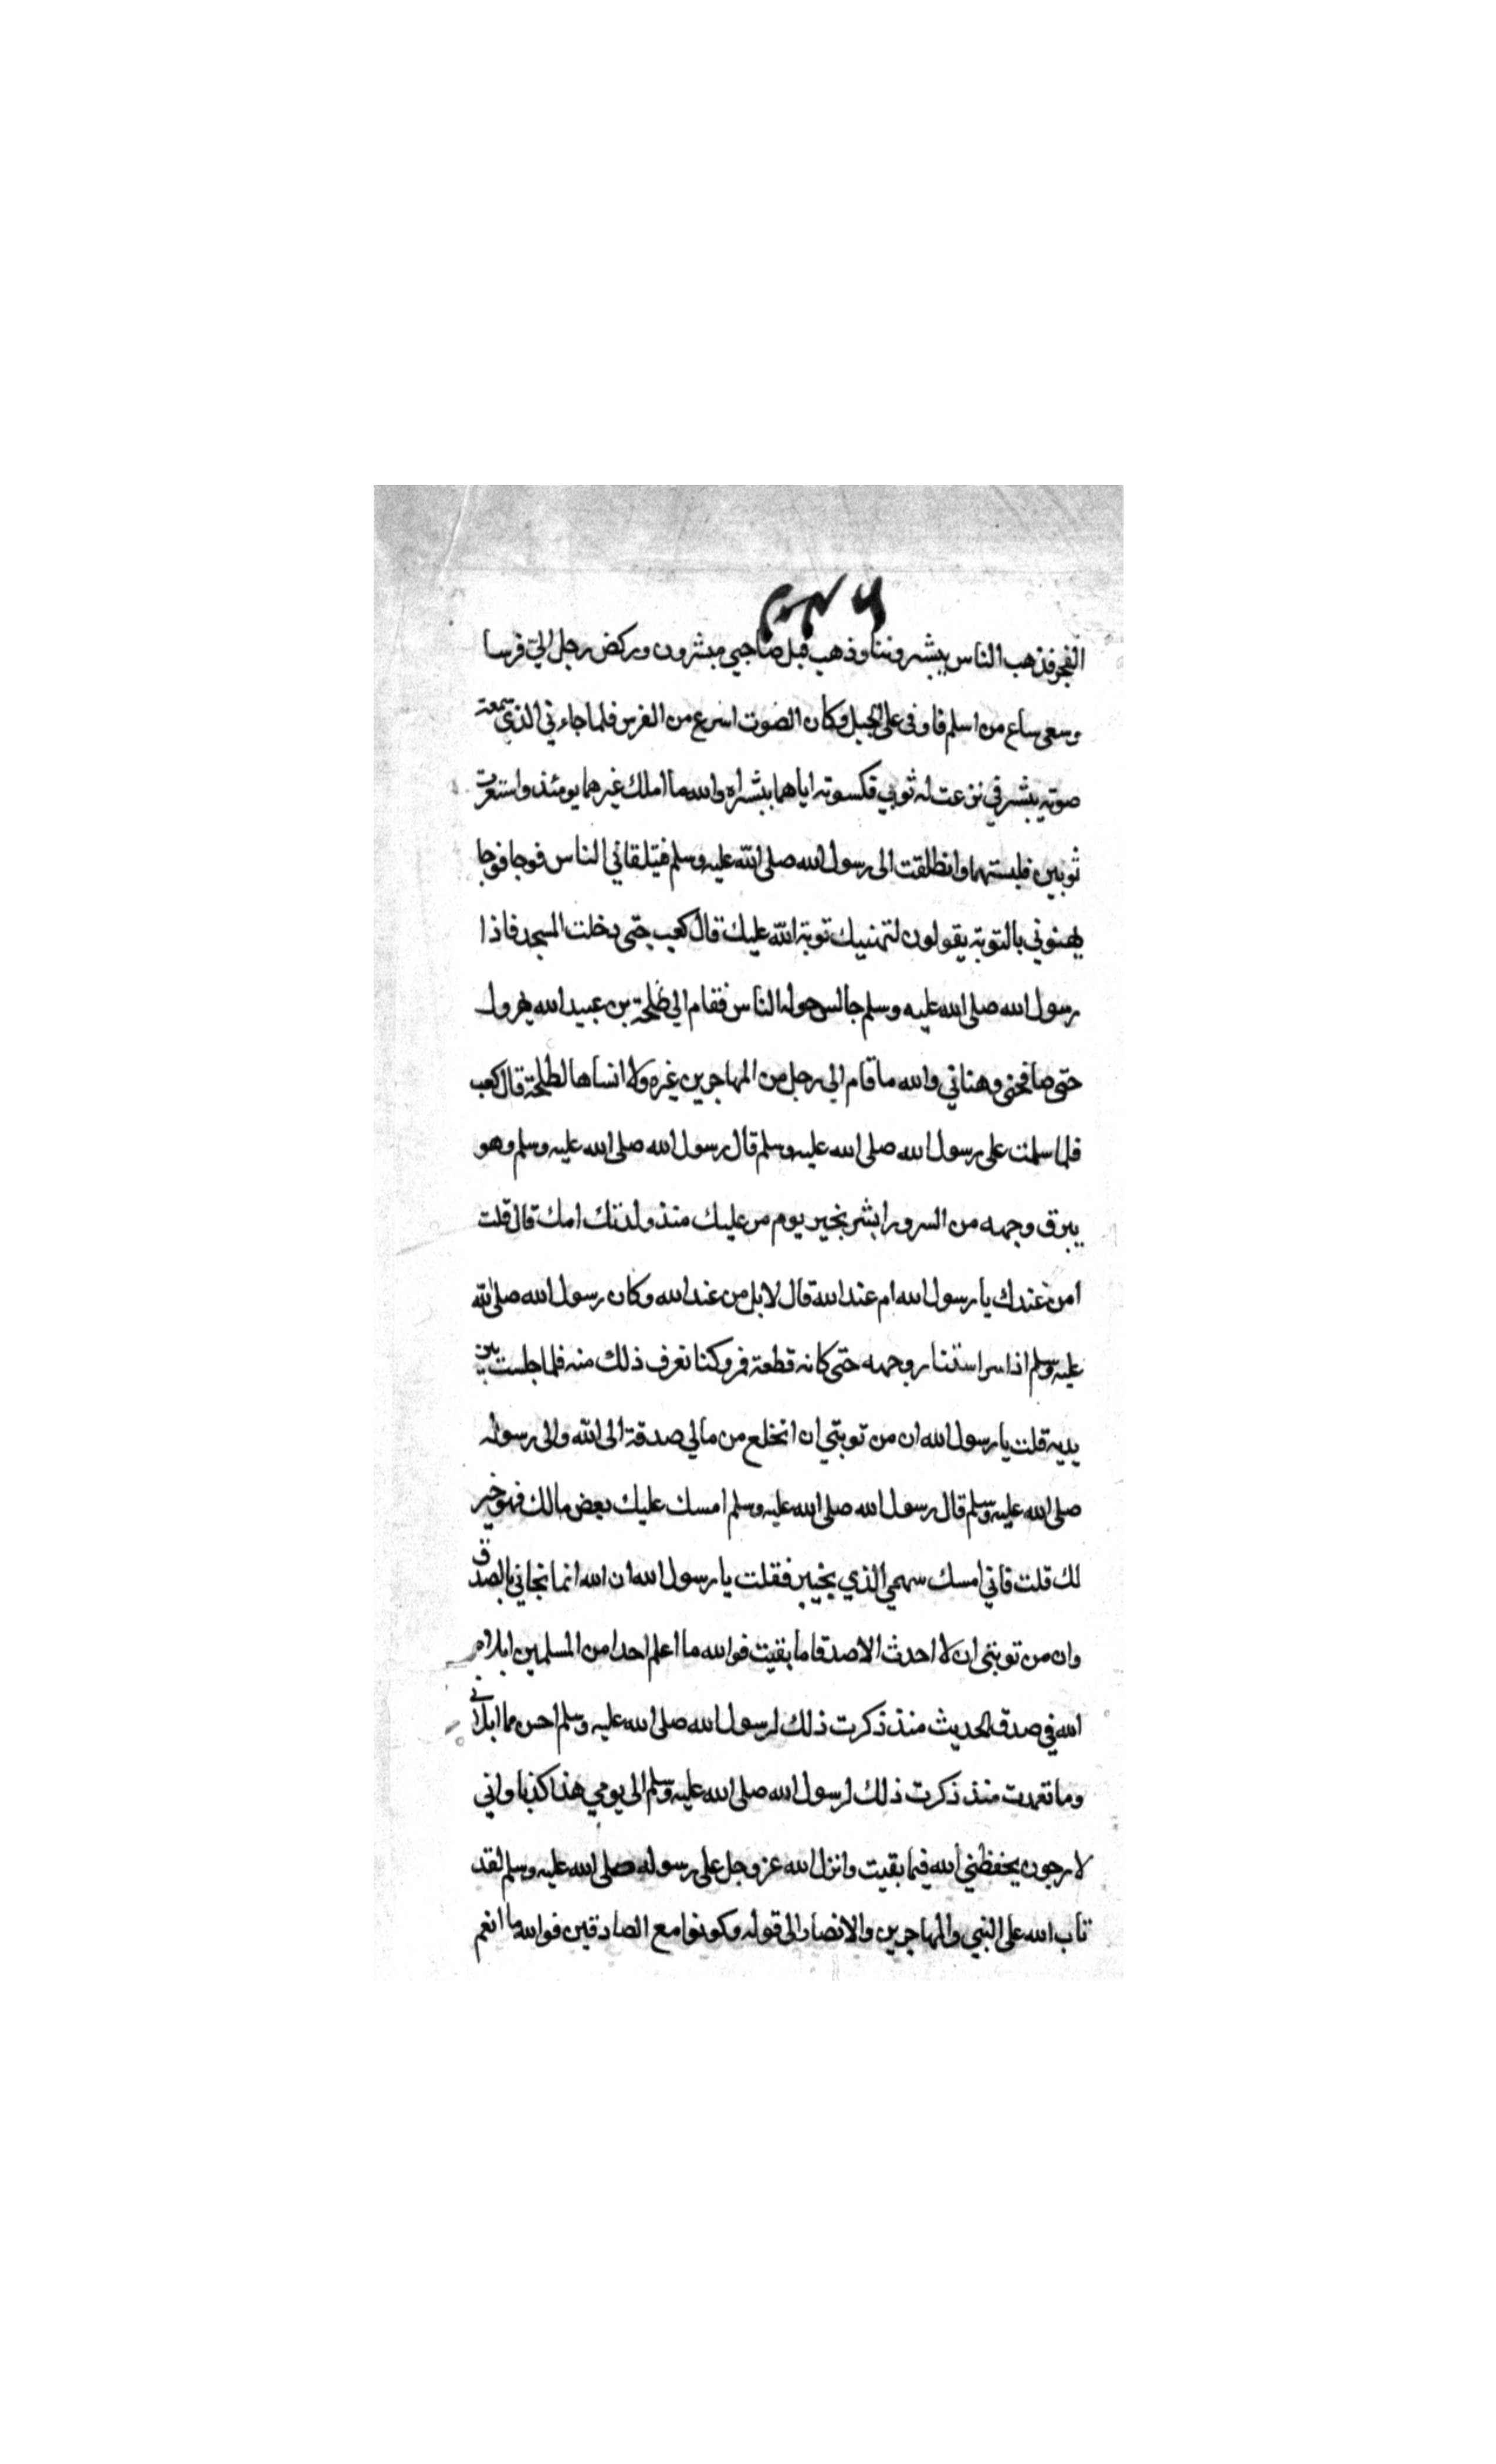 الفجر فذهب الناس يبشروننا وذهب قبل صاحبي مبشرون وركض رجل الي فرسا
وسعى ساع من اسلم فاوفى على الجبل وكان الصوت اسرع من الفرس فلما جاءني الذي سمعت
صوته يبشرني نزعت له ثوبي فكسوته اياهما ببشراه والله ما املك غيرهما يومئذ واستعرت
ثوبين فلبستهما وانطلقت الى رسول الله صلى الله عليه وسلم فيتلقاني الناس فوجا فوجا
يهنوني بالتوبة يقولون لتهنيك توبة الله عليك قال كعب حتى دخلت المسجد فاذا
رسول الله صلى الله عليه وسلم جالس حوله الناس فقام الي طلحة بن عبيد الله يهرول
حتى صافحني وهناني والله ما قام الي رجل من المهاجرين غيره ولا انساها لطلحة قال كعب
فلما سلمت على رسول الله صلى الله عليه وسلم قال رسول الله صلى الله عليه وسلم وهو
يبرق وجهه من السرور ابشر بخير يوم مر عليك منذ ولدتك امك قال قلت
امن عندك يا رسول الله ام عند الله قال لا بل من عند الله وكان رسول الله صلى الله
عليه وسلم اذا سر استنار وجهه حتى كانه قطعة قمر وكنا نعرف ذلك منه فلما جلست بين
يديه قلت يا رسول الله ان من توبتي ان انخلع من مالي صدقة الى الله والى رسوله
صلى الله عليه وسلم قال رسول الله صلى الله عليه وسلم امسك عليك بعض مالك فهو خير
لك قلت فاني امسك سهمي الذي بخيبر فقلت يا رسول الله ان الله انما نجاني بالصدق
وان من توبتي ان لا احدث الا صدقا ما بقيت فوالله ما اعلم احدا من المسلمين ابلاه
الله في صدق الحديث منذ ذكرت ذلك لرسول الله صلى الله عليه وسلم احسن مما ابلاني
وما تعمدت منذ ذكرت ذلك لرسول الله صلى الله عليه وسلم الى يومي هذا كذبا واني
لارجو ان يحفظني الله فيما بقيت وانزل الله عز وجل على رسوله صلى الله عليه وسلم لقد
تاب الله على النبي والمهاجرين والانصار الى قوله وكونوا مع الصادقين فوالله ما انعم